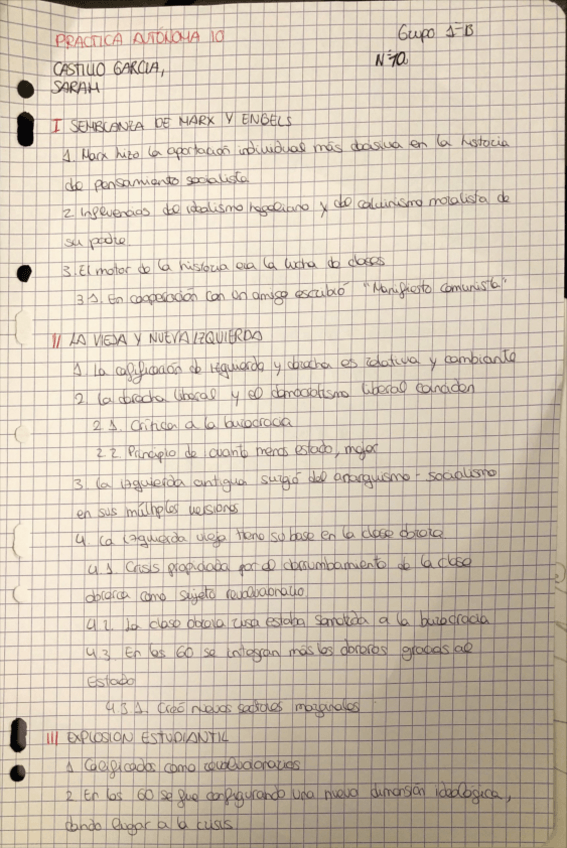 PRACTICA AUTÓNOMA 10
Grupo 1ºB
CASTILLO GARCIA,
Nº 10
SARAH
I SEMBLANZA DE MARX Y ENGELS
1. Marx hizo la aportación individual más decisiva en la historia
de pensamiento socialista
2. de idealismo hegeliano y de calvinismo moralista de
su padre.
3. El motor de la historia era la lucha de clases
3.1. En cooperación con un amigo escribió "Manifiesto comunista"
II LA VIEJA Y NUEVA IZQUIERDA
1. La calificación de izquierda y derecha es relativa y cambiante
2. La derecha liberal y el democratismo liberal coinciden
2.1. Crítica a la burocracia
2.2. Principio de cuanto menos estado, mejor
3. La izquierda antigua surgó del anarquismo - socialismo
en sus múltiples versiones
4. La izquierda vieja tiene su base en la clase obrera
4.1. Crisis propiciada por el derrumbamiento de la clase
obrera como sujeto revolucionario
4.2. La clase obrera rusa estaba sometida a la burocracia
4.3. En los 60 se integran más los obreros gracias al
Estado
4.3.1. Creó nuevos sectores marginales
III EXPLOSION ESTUDIANTIL
1. Calificados como revolucionarios
2. En los 60 se fue configurando una nueva dimensión ideológica,
dando lugar a la crisis